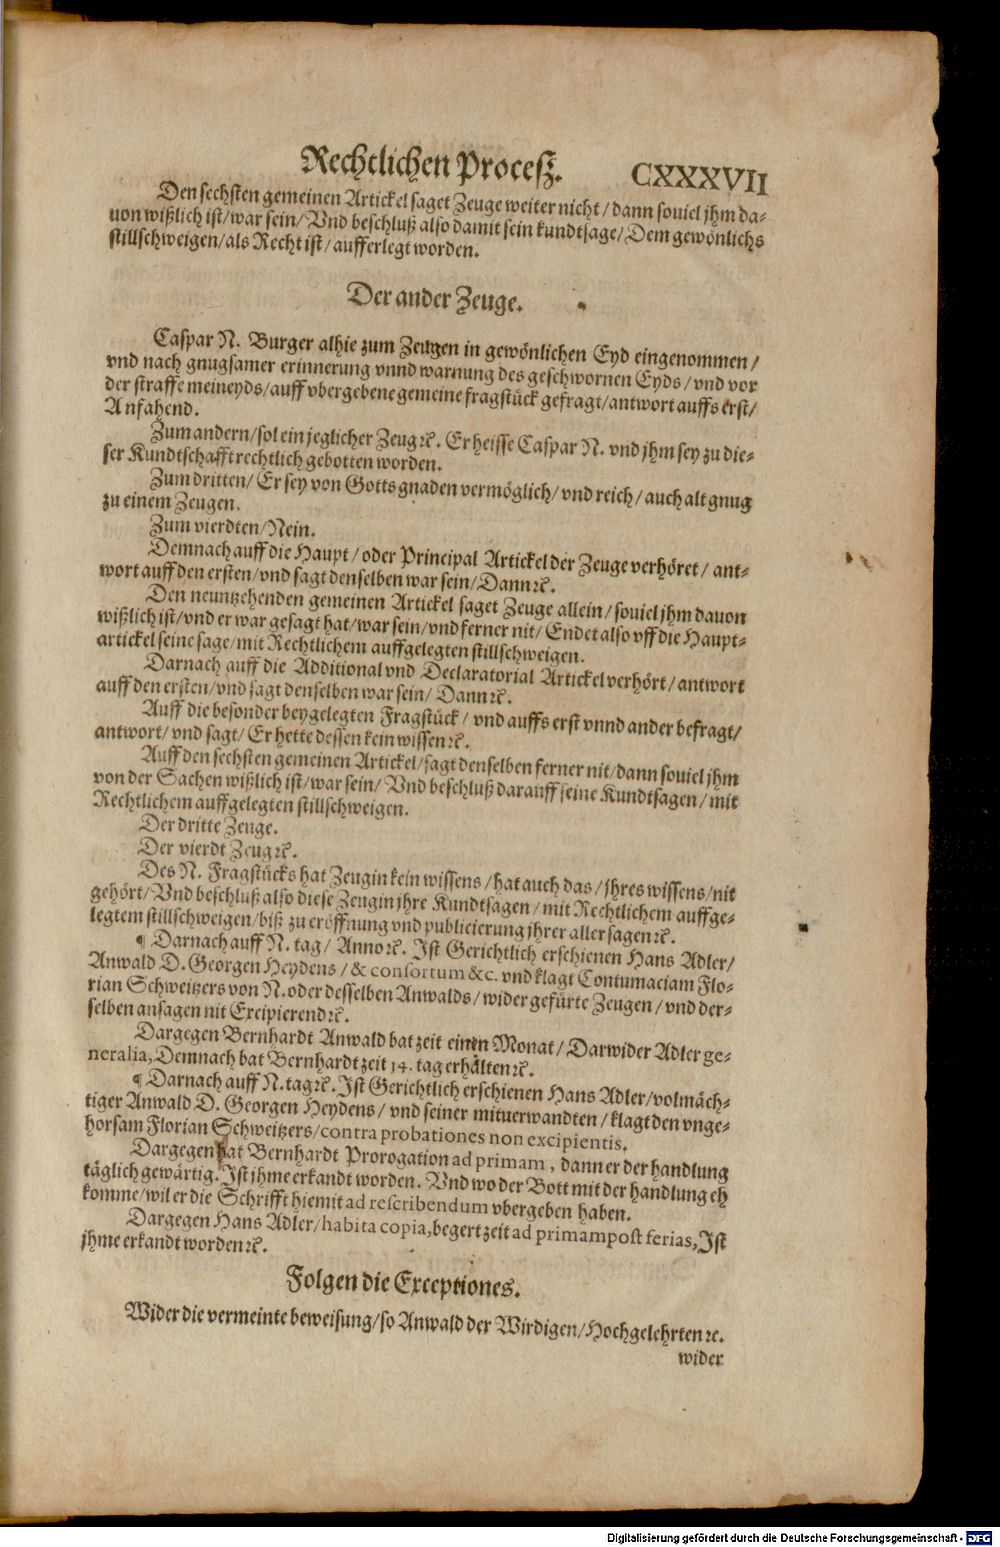 Rechtlichen Proceß. CXXXVII
Den sechsten gemeinen Artickel saget Zeuge weiter nicht / dann souiel jhm da-
uon wißlich ist / war sein / Vnd beschluß also damit sein kundtsage / Dem gewönlichs
stillschweigen / als Recht ist / aufferlegt worden.
Der ander Zeuge.
Caspar N. Burger alhie zum Zeugen in gewönlichen Eyd eingenommen /
vnd nach gnugsamer erinnerung vnnd warnung des geschwornen Eyds / vnd vor
der straffe meineyds / auff vbergebene gemeine fragstück gefragt / antwort auffs erst /
Anfahend.
Zum andern / sol ein jeglicher Zeug ꝛc. Er heisse Caspar N. vnd jhm sey zu die-
ser Kundtschafft rechtlich gebotten worden.
Zum dritten / Er sey von Gotts gnaden vermöglich / vnd reich / auch alt gnug
zu einem Zeugen.
Zum vierdten / Nein.
Demnach auff die Haupt / oder Principal Artickel der Zeuge verhöret / ant-
wort auff den ersten / vnd sagt denselben war sein / Dann ꝛc.
Den neuntzehenden gemeinen Artickel saget Zeuge allein / souiel jhm davon
wißlich ist / vnd er war gesagt hat / war sein / vnd ferner nit / Endet also vff die Haupt-
artickel seine sage / mit Rechtlichem auffgelegten stillschweigen.
Darnach auff die Additional vnd Declaratorial Artickel verhört / antwort
auff den ersten / vnd sagt denselben war sein / Dann ꝛc.
Auff die besonder beygelegten Fragstück / vnd auffs erst vnnd ander befragt /
antwort / vnd sagt / Er hette dessen kein wissen ꝛc.
Auff den sechsten gemeinen Artickel / sagt denselben ferner nit / dann souiel jhm
von der Sachen wißlich ist / war sein / Vnd beschluß darauff seine Kundtsagen / mit
Rechtlichem auffgelegten stillschweigen.
Der dritte Zeuge.
Der vierdt Zeug ꝛc.
Des N. Fragstücks hat Zeugin kein wissens / hat auch das / jhres wissens / nit
gehört / Vnd beschluß also diese Zeugin jhre Kundtsagen / mit Rechtlichem auffge-
legtem stillschweigen / biß zu eröffnung vnd publicierung jhrer aller sagen ꝛc.
¶ Darnach auff N. tag / Anno ꝛc. Ist Gerichtlich erschienen Hans Adler /
Anwald D. Georgen Heydens / & consortum &c. vnd klagt Contumaciam Flo-
rian Schweitzers von N. oder desselben Anwalds / wider gefürte Zeugen / vnd der-
selben ansagen nit Excipierend ꝛc.
Dargegen Bernhardt Anwald bat zeit einen Monat / Darwider Adler ge-
neralia, Demnach bat Bernhardt zeit 14. tag erhalten ꝛc.
¶ Darnach auff N. tag ꝛc. Ist Gerichtlich erschienen Hans Adler / volmäch-
tiger Anwald D. Georgen Heydens / vnd seiner mituerwandten / klagt den vnge-
horsam Florian Schweitzers / contra probationes non excipientis.
Dargegen hat Bernhardt Prorogation ad primam, dann er der handlung
täglich gewärtig. Ist jhme erkandt worden. Vnd wo der Bott mit der handlung eh
komme / wil er die Schrifft hiemit ad rescribendum vbergeben haben.
Dargegen Hans Adler / habita copia, begert zeit ad primam post ferias, Ist
jhme erkandt worden ꝛc.
Folgen die Exceptiones.
Wider die vermeinte beweisung / so Anwald der Wirdigen / Hochgelehrten ꝛc.
wider
Digitalisierung gefördert durch die Deutsche Forschungsgemeinschaft - DFG